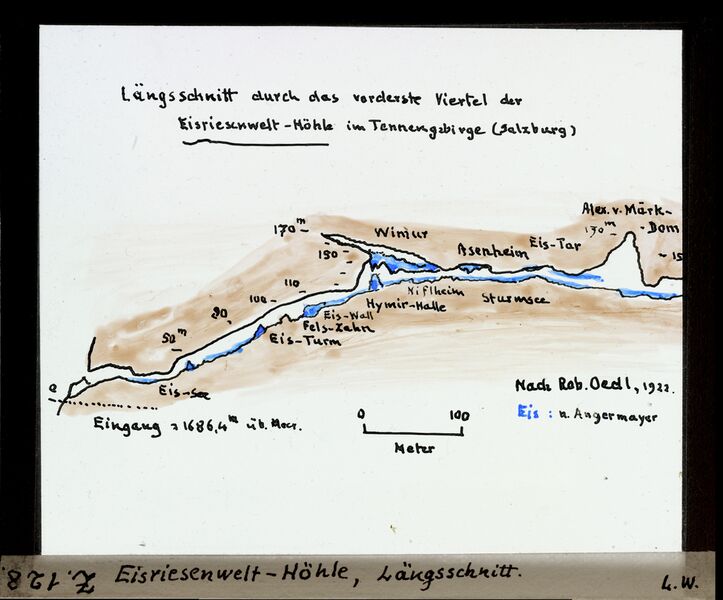 Längsschnitt durch das vorderste Viertel der
Eisriesenwelt-Höhle im Tennengebirge (Salzburg)
Alex. v. Märk-
Dom
170 m
Wimur
130 m
150
Asenheim
Eis-Tor
15
110
100
Niflheim
Sturmsee
Hymir-Halle
Eis-Wall
Fels-Zahn
Eis-Turm
50 m
Eis-See
0
Eingang = 1686,4 m üb. Meer.
Nach Rob. Oedl, 1922.
Eis: n. Angermayer
0 100
Meter
Z. 12 8. Eisriesenwelt-Höhle, Längsschnitt. L.W.